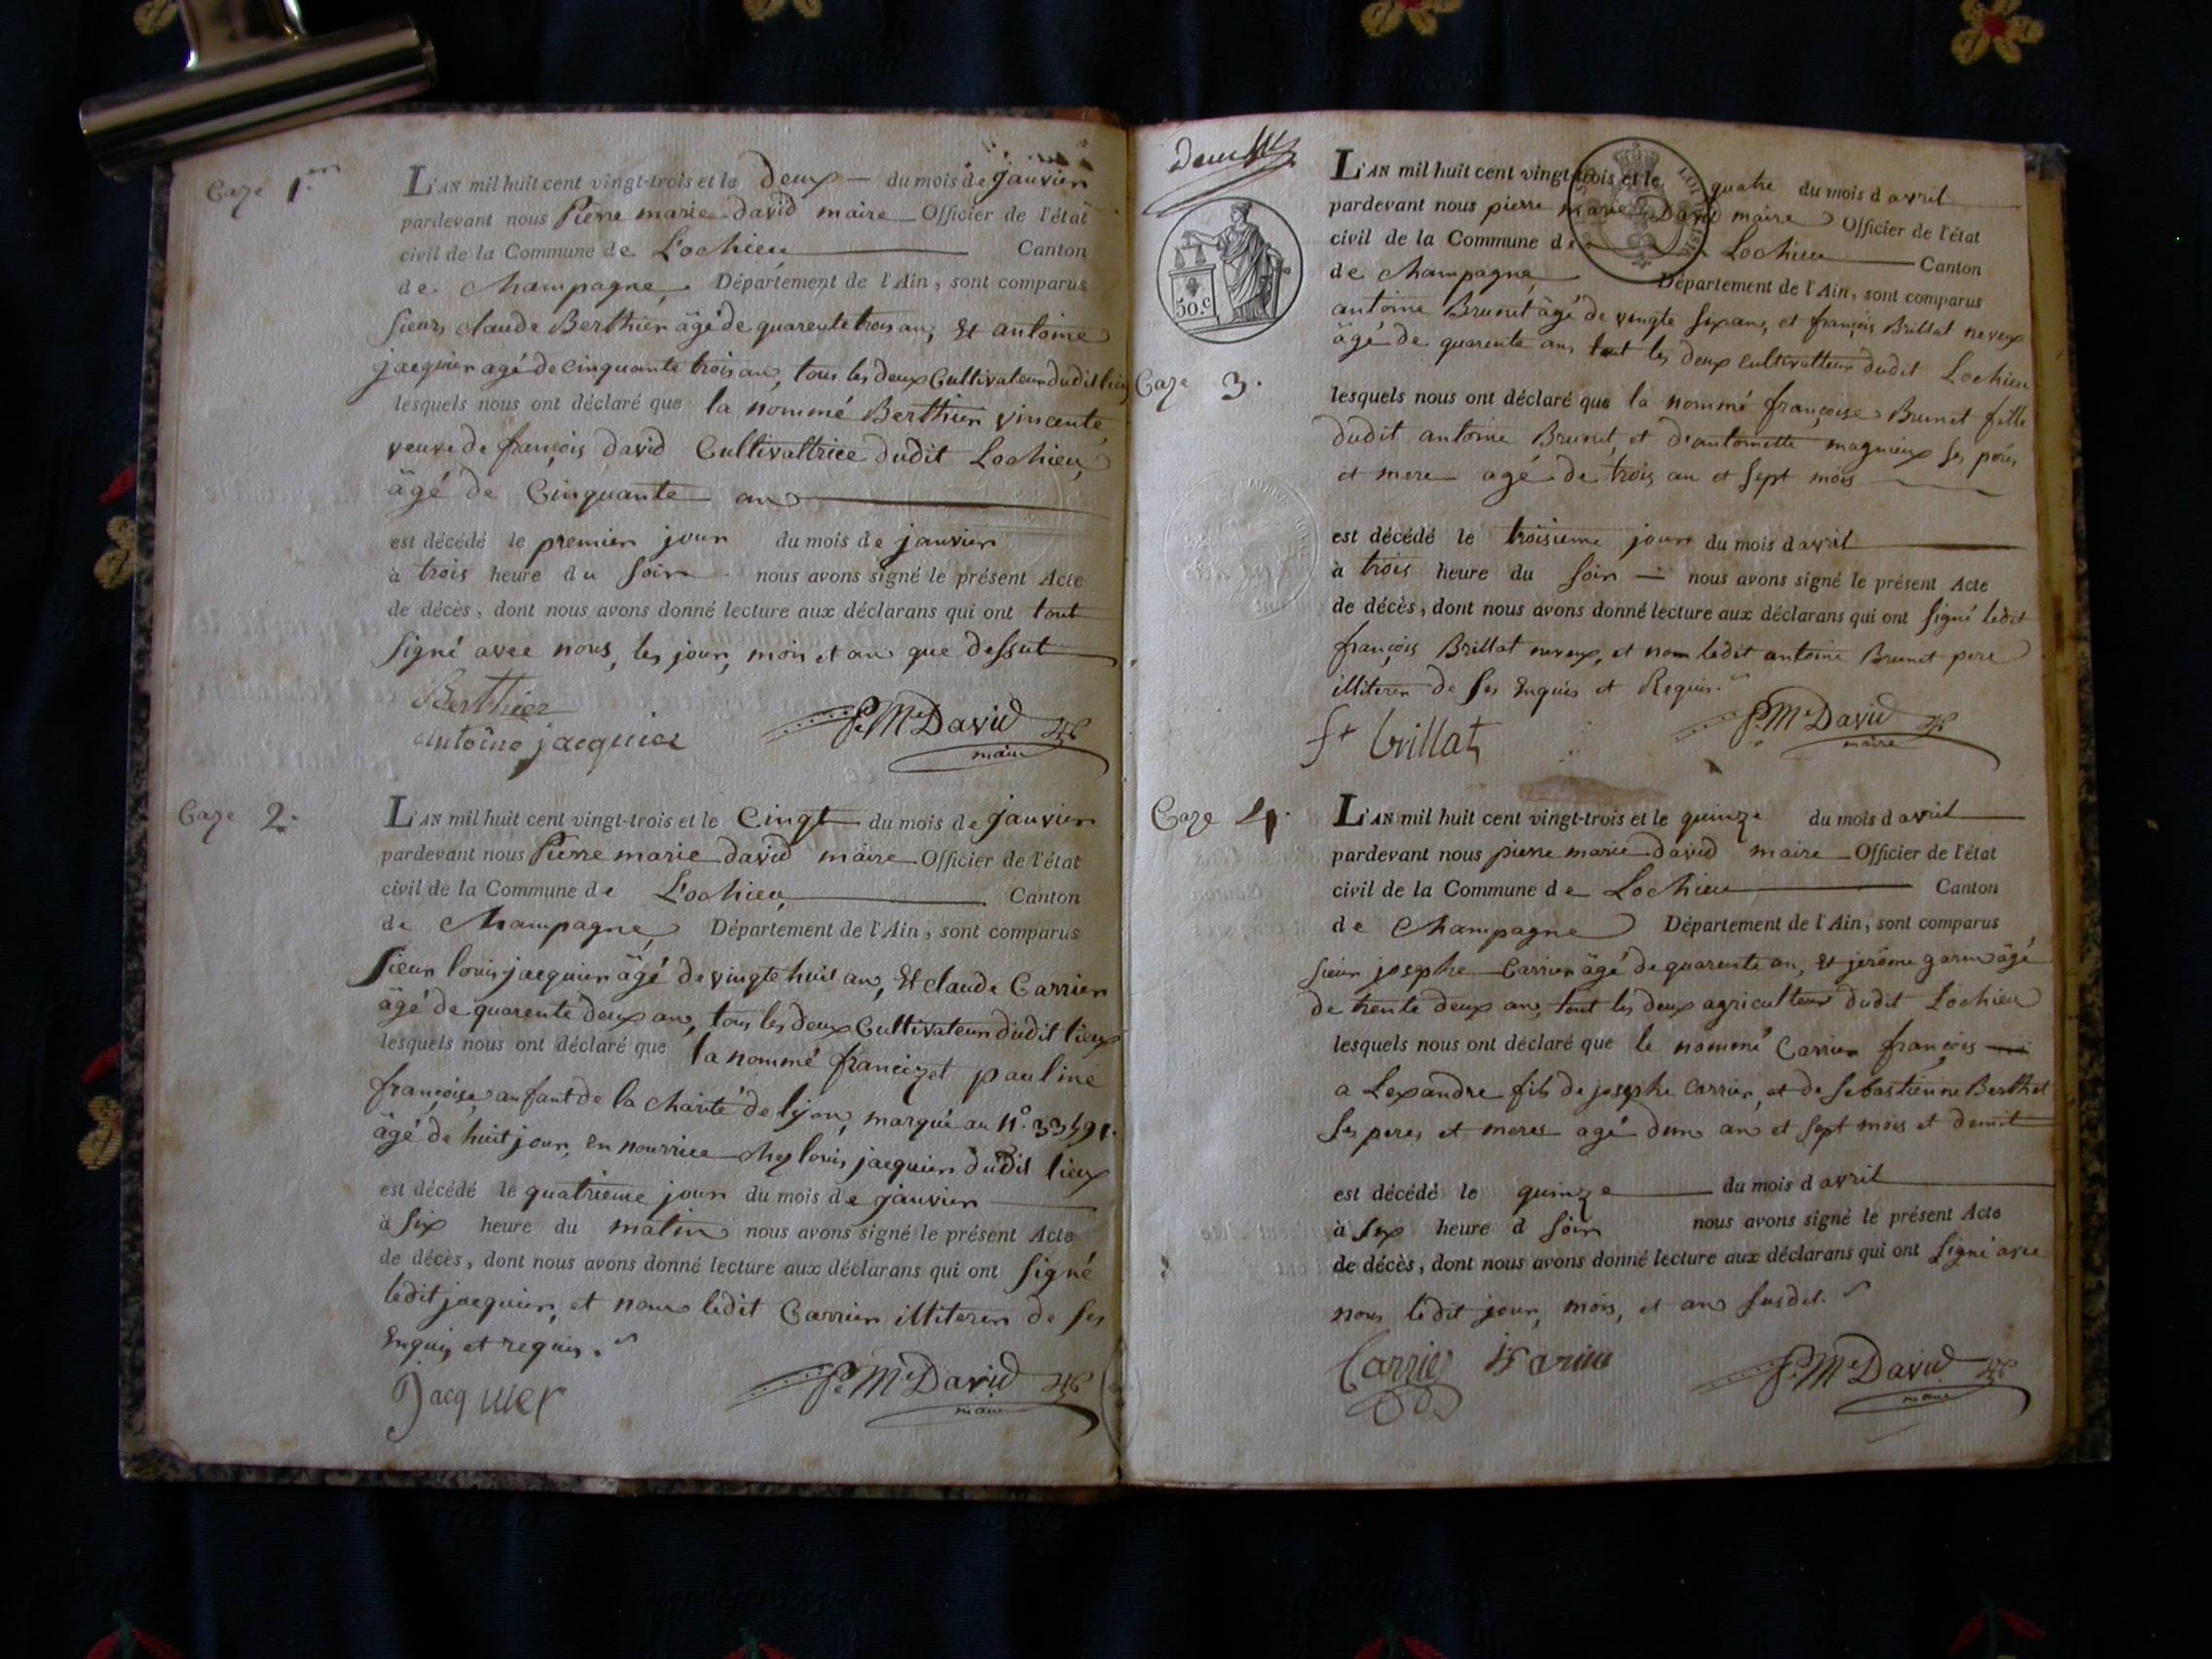 Caze 1.er
L'AN mil huit cent vingt-trois et le deux du mois de janvier
pardevant nous Pierre marie david maire Officier de l'état
civil de la Commune de L'ochieu Canton
de Champagne Département de l'Ain, sont comparus
sieurs claude Berthier âgé de quarente trois an, Et antoine
jacquier agé de cinquante trois an, tous les deux Cultivateur dudit lieu
lesquels nous ont déclaré que la nommé Berthier vincente
veuve de françois david Cultivattrice dudit Lochieu
âgé de Cinquante an
est décédé le premier jour du mois de janvier
à trois heure du soir nous avons signé le présent Acte
de décès, dont nous avons donné lecture aux déclarans qui ont tout
signé avec nous, les jour, mois et an que dessut
Berthier
antoine jacquier
P. Me David
maire
Caze 2.
L'AN mil huit cent vingt-trois et le Cinqt du mois de janvier
pardevant nous Pierre marie david maire Officier de l'état
civil de la Commune de L'ochieu Canton
de Champagne Département de l'Ain, sont comparus
sieur louis jacquier âgé de vingte huit an, Et claude Carrier
âgé de quarente deux an, tous les deux Cultivateur dudit lieux
lesquels nous ont déclaré que la nommé francizet pauline
françoise anfant de la charité de lyon, marqué au n°.
âgé de huit jour, en nourrice chez louis jacquier dudit lieux
est décédé le quatrieme jour du mois de janvier
à six heure du matin nous avons signé le présent Acte
de décès, dont nous avons donné lecture aux déclarans qui ont signé
ledit jacquier, et non ledit Carrier illiteren de ses
Enquis et requis.
Jacquier
P. Me David
maire
50.c
LOI 1816
L'AN mil huit cent vingt-trois et le quatre du mois d avril
pardevant nous pierre marie David maire Officier de l'état
civil de la Commune de Lochieu Canton
de Champagne Département de l'Ain, sont comparus
antoine Brunet âgé de vingte six an, et françois Brillat neveux
âgé de quarente ans tout les deux cultivatteur dudit Lochieu
Caze 3.
lesquels nous ont déclaré que la nommé françoise Brunet fille
dudit antoine Brunet, et d'antoinette magnieux ses pères
et mere agé de trois an et sept mois
est décédé le troisieme jour du mois d avril
à trois heure du soir nous avons signé le présent Acte
de décès, dont nous avons donné lecture aux déclarans qui ont signé ledit
françois Brillat neveux, et non ledit antoine Brunet pere
illiteren de ses Enquis et Requis.
fs brillat
P. Me David
maire
Caze 4.
L'AN mil huit cent vingt-trois et le quinze du mois d avril
pardevant nous pierre marie david maire Officier de l'état
civil de la Commune de Lochieu Canton
de Champagne Département de l'Ain, sont comparus
sieur josephe Carrier âgé de quarente an, Et jerôme garin âgé
de trente deux an, tout les deux agriculteur dudit Lochieu
lesquels nous ont déclaré que le nommé Carrier françois
a Lexandre fils de josephe Carrier, et de sebastienne Berthet
ses peres et meres agé dun an et sept mois et demit
est décédé le quinze du mois d avril
à six heure d soir nous avons signé le présent Acte
de décès, dont nous avons donné lecture aux déclarans qui ont signé avec
nous ledit jour, mois, et an susdit.
Carrier
P. Me David
maire